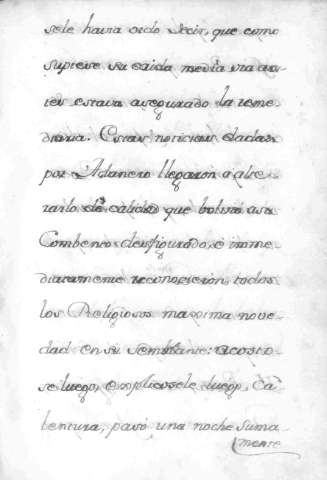 sele havia oido decir, que como
supiese su caida media ora an-
tes estava asegurado la reme-
diaria. Estas noticias dadas
por Adanero llegaron a alte-
rarlo de calidad que bolvió a su
Combento desfigurado, é inme-
diatamente reconocieron todos
los Religiosos maxima nove-
dad en su semblante: acosto-
se luego, explicosele luego, Ca-
lentura, pasó una noche suma-
mente